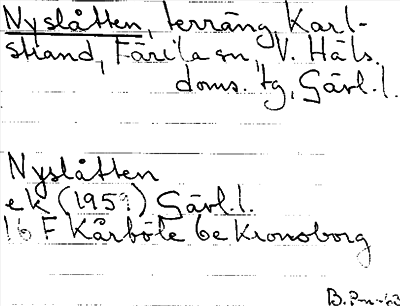 Nyslåtten, terräng, Karl-
strand, Färila sn, V. Häls.
doms. tg, Gävl. l.
Nyslåtten
ek (1959) Gävl. l.
16 F Kårböle 6e Kronoborg